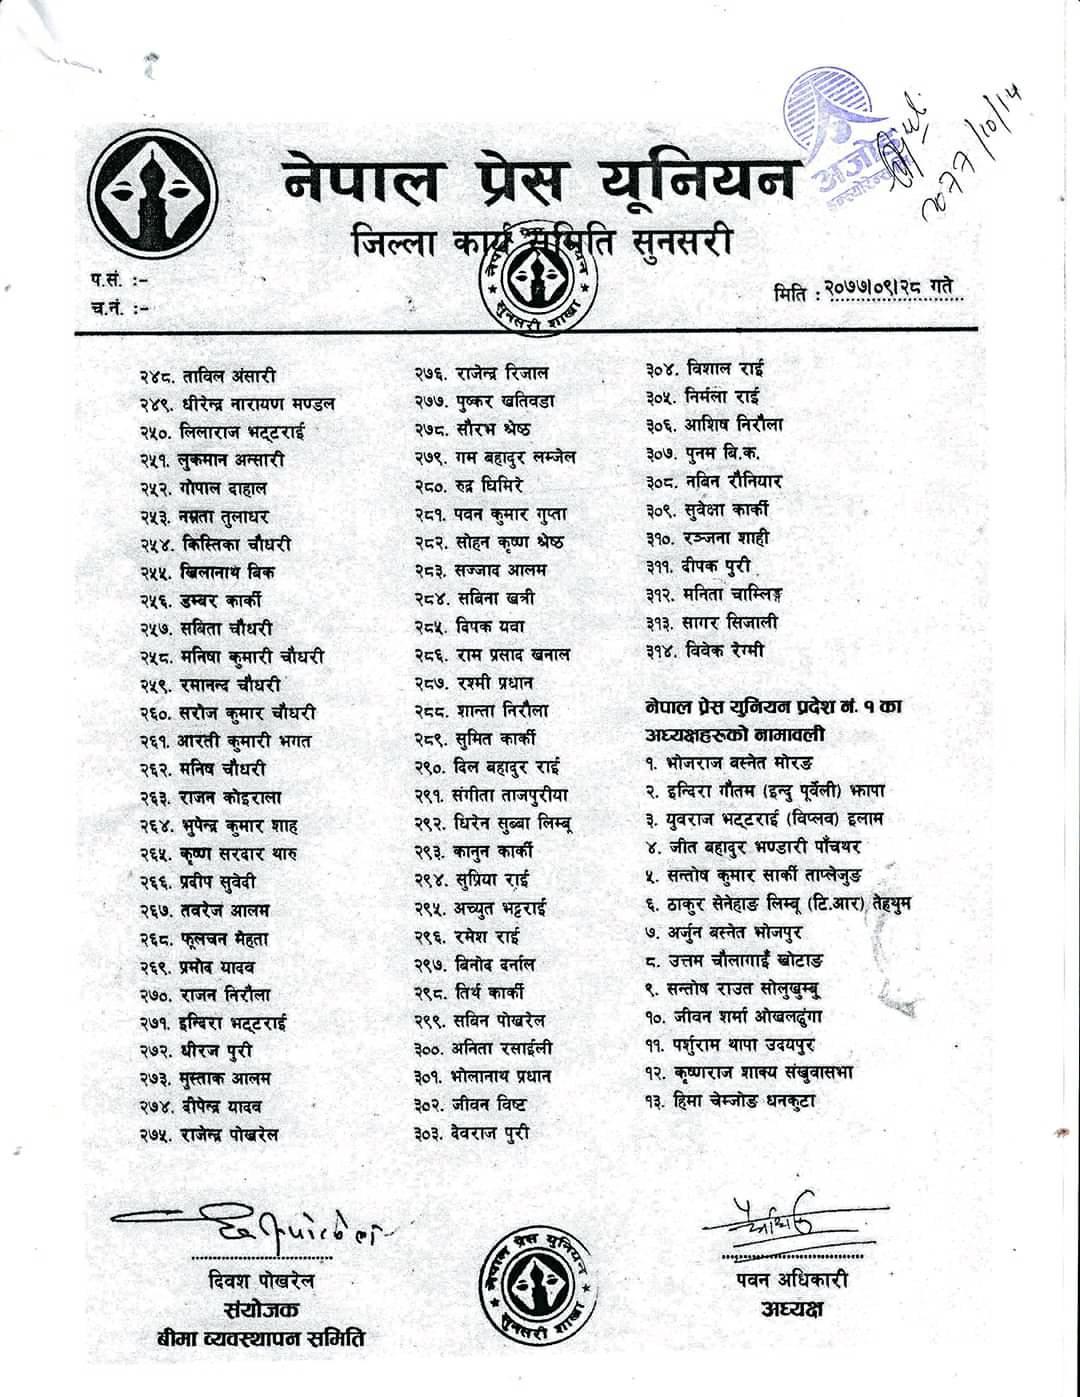 नेपाल प्रेस यूनियन
जिल्ला कार्य समिति सुनसरी
अजोड
इन्स्योरेन्स
२०७७/१०/१५
नेपाल प्रेस युनियन
सुनसरी शाखा
प.सं. :-
च.नं. :-
मिति : २०७७/०९/२८ गते
२४८. ताविल अंसारी
२४९. धीरेन्द्र नारायण मण्डल
२५०. लिलाराज भट्टराई
२५१. लुकमान अन्सारी
२५२. गोपाल दाहाल
२५३. नम्रता तुलाधर
२५४. किस्तिका चौधरी
२५५. खिलानाथ बिक
२५६. डम्बर कार्की
२५७. सबिता चौधरी
२५८. मनिषा कुमारी चौधरी
२५९. रमानन्द चौधरी
२६०. सरोज कुमार चौधरी
२६१. आरती कुमारी भगत
२६२. मनिष चौधरी
२६३. राजन कोइराला
२६४. भुपेन्द्र कुमार शाह
२६५. कृष्ण सरदार थारु
२६६. प्रदीप सुवेदी
२६७. तवरेज आलम
२६८. फूलचन मेहता
२६९. प्रमोद यादव
२७०. राजन निरौला
२७१. इन्दिरा भट्टराई
२७२. धीरज पुरी
२७३. मुस्ताक आलम
२७४. दीपेन्द्र यादव
२७५. राजेन्द्र पोखरेल
२७६. राजेन्द्र रिजाल
२७७. पुष्कर खतिवडा
२७८. सौरभ श्रेष्ठ
२७९. गम बहादुर लम्जेल
२८०. रुद्र घिमिरे
२८१. पवन कुमार गुप्ता
२८२. सोहन कृष्ण श्रेष्ठ
२८३. सज्जाद आलम
२८४. सबिना खत्री
२८५. दिपक यवा
२८६. राम प्रसाद खनाल
२८७. रश्मी प्रधान
२८८. शान्ता निरौला
२८९. सुमित कार्की
२९०. दिल बहादुर राई
२९१. संगीता ताजपुरीया
२९२. धिरेन सुब्बा लिम्बू
२९३. कानुन कार्की
२९४. सुप्रिया राई
२९५. अच्युत भट्टराई
२९६. रमेश राई
२९७. बिनोद दर्नाल
२९८. तिर्थ कार्की
२९९. सबिन पोखरेल
३००. अनिता रसाईली
३०१. भोलानाथ प्रधान
३०२. जीवन विष्ट
३०३. देवराज पुरी
३०४. विशाल राई
३०५. निर्मला राई
३०६. आशिष निरौला
३०७. पुनम बि.क.
३०८. नबिन रौनियार
३०९. सुवेक्षा कार्की
३१०. रञ्जना शाही
३११. दीपक पुरी
३१२. मनिता चाम्लिङ्ग
३१३. सागर सिजाली
३१४. विवेक रेग्मी
नेपाल प्रेस युनियन प्रदेश नं. १ का
अध्यक्षहरुको नामावली
१. भोजराज बस्नेत मोरङ
२. इन्दिरा गौतम (इन्दु पूर्वेली) झापा
३. युवराज भट्टराई (विप्लव) इलाम
४. जीत बहादुर भण्डारी पाँचथर
५. सन्तोष कुमार सार्की ताप्लेजुङ
६. ठाकुर सेनेहाङ लिम्बू (टि.आर) तेह्रथुम
७. अर्जुन बस्नेत भोजपुर
८. उत्तम चौलागाइँ खोटाङ
९. सन्तोष राउत सोलुखुम्बू
१०. जीवन शर्मा ओखलढुंगा
११. पर्शुराम थापा उदयपुर
१२. कृष्णराज शाक्य संखुवासभा
१३. हिमा चेम्जोङ धनकुटा
दिवश पोखरेल
संयोजक
बीमा व्यवस्थापन समिति
नेपाल प्रेस युनियन
सुनसरी शाखा
पवन अधिकारी
अध्यक्ष